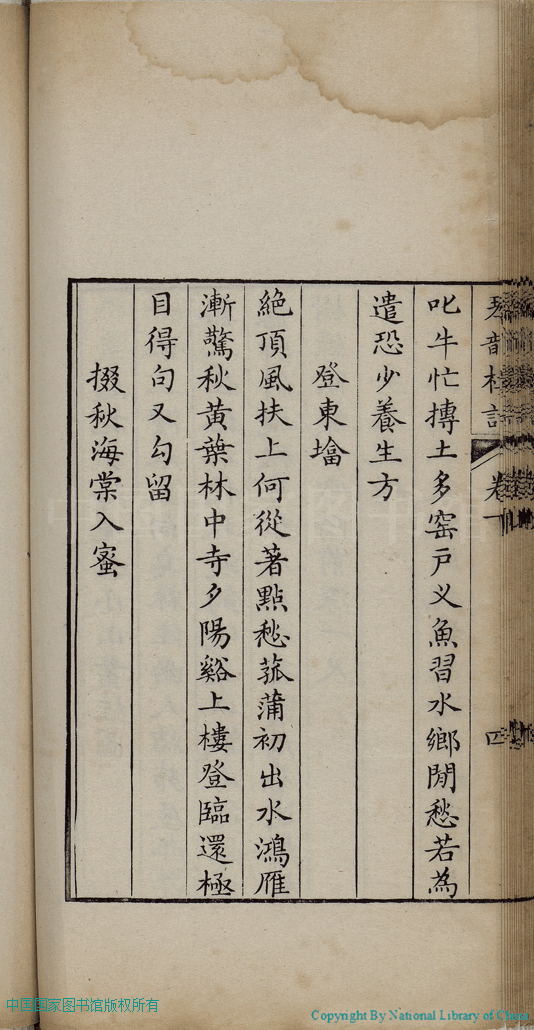 叱牛忙摶土多窑戶义魚習水鄉閒愁若為
遣恐少養生方
登東墖
絶頂風扶上何從著點愁菰蒲初出水鴻雁
漸驚秋黃葉林中寺夕陽谿上樓登臨還極
目得句又勾留
掇秋海棠入蜜
中国国家图书馆版权所有
Copyright By National Library of China